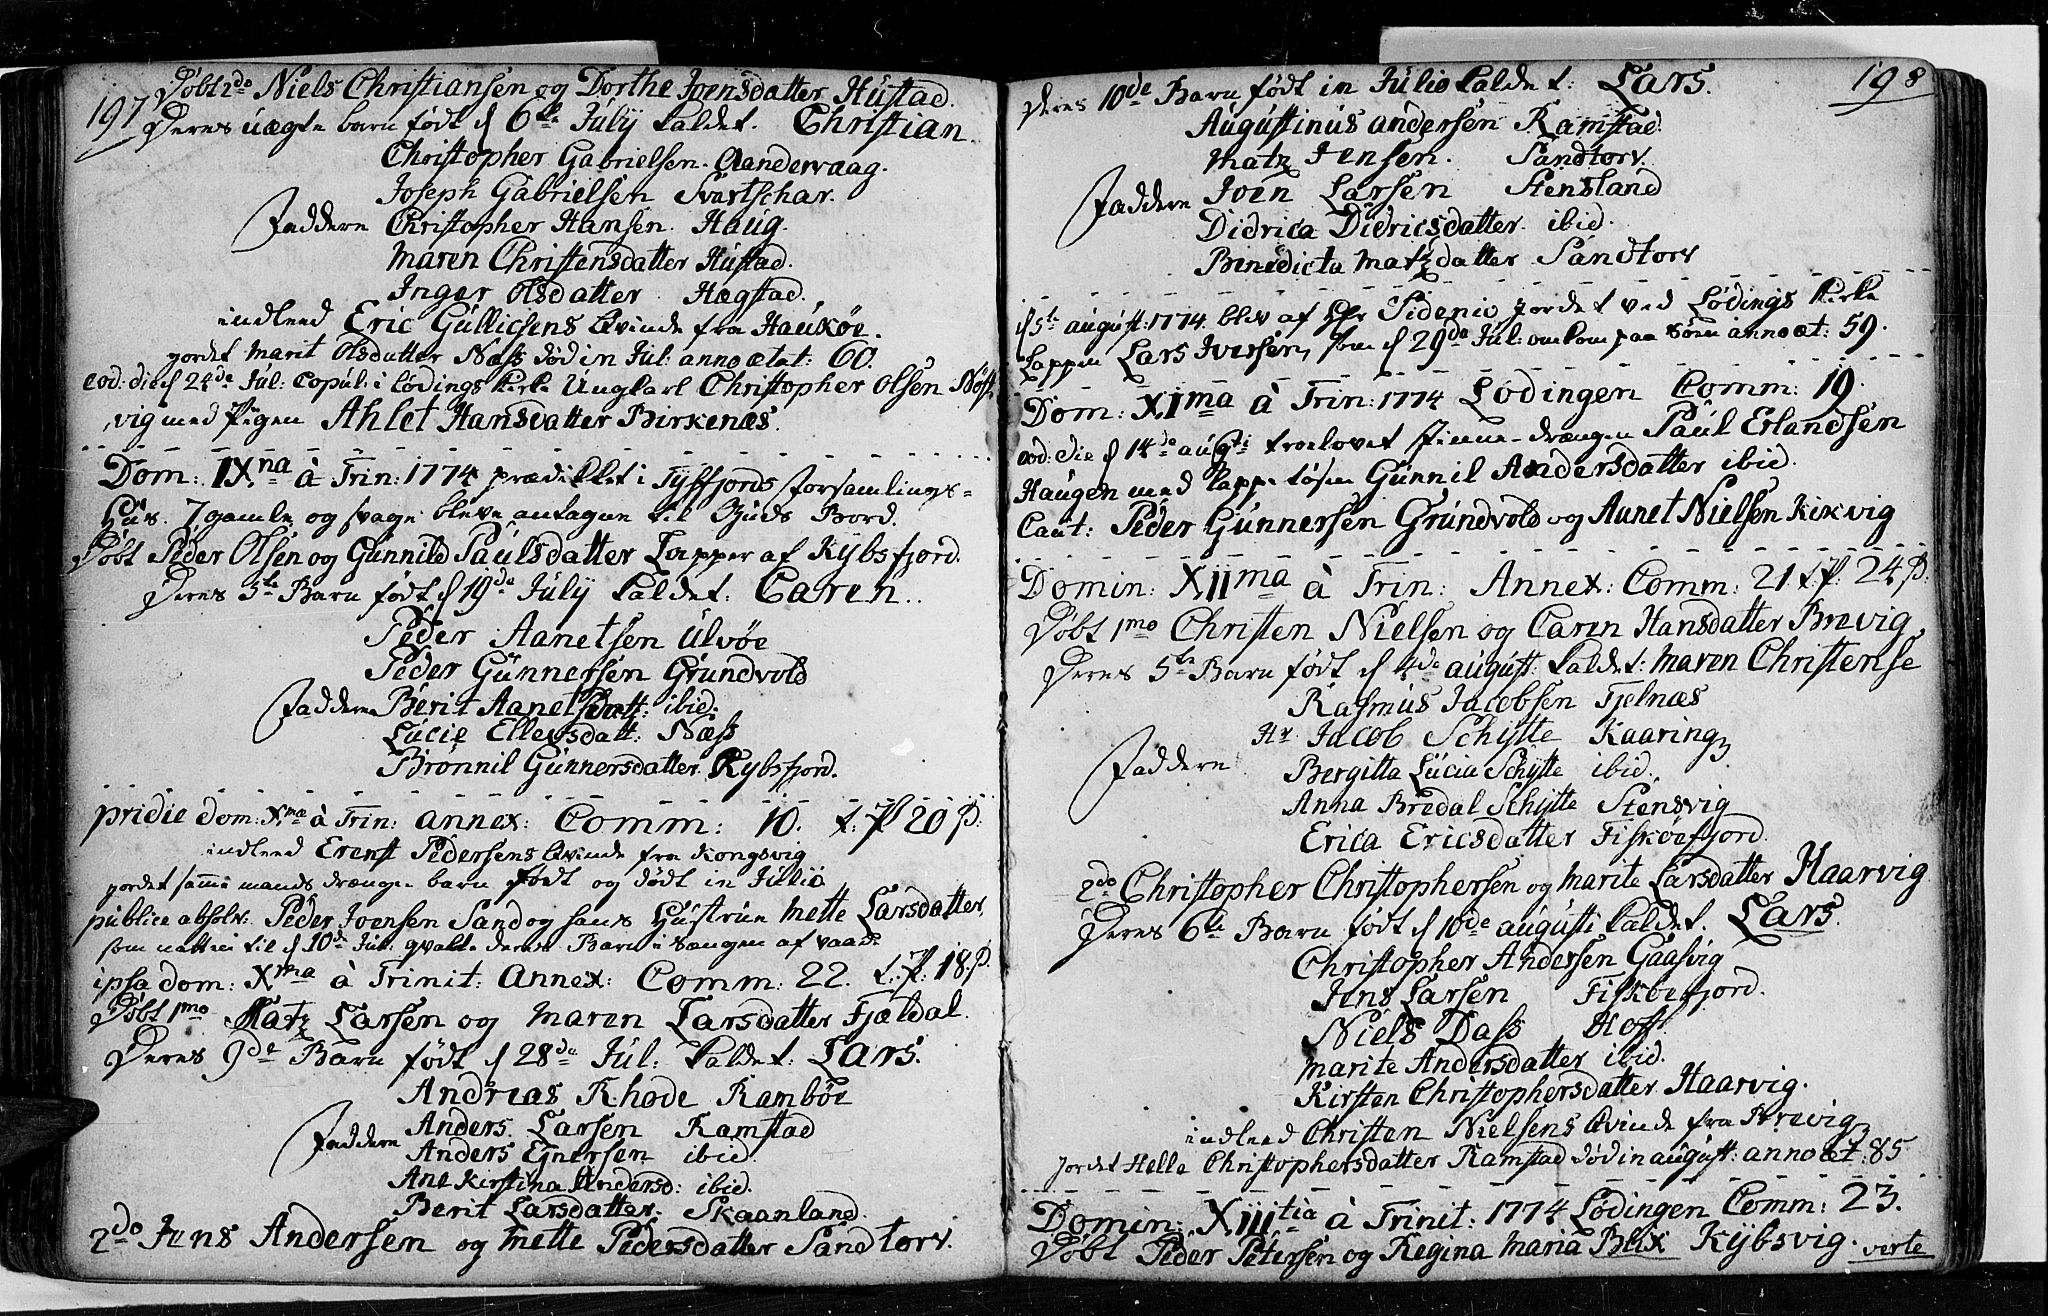 197
Døbt 2do Niels Christiansen og Dorthe Joensdatter Hustad.
Deres uægte barn født d 6te July kaldet. Christian
Christopher Gabrielsen. Aandervaag.
Joseph Gabrielsen Svartschar.
Faddere Christopher Hansen. Haug.
Maren Christensdatter Hustad.
Inger Olsdatter. Hægstad.
indleed Eric Gullicsens Qvinde fra Haukøe.
jordet Marit Olsdatter Næss død in Jul: anno ætat: 60.
eod: die d 24de Jul: Copul: i Lødings Kirke Ungkarl Christopher Olsen Nøst
vig med Pigen Ahlet Hansdatter Birkenæs.
Dom: IXna à Trin: 1774 prædikket i Tysfjords forsamlings=
Hus. 7 gamle og svage bleve antagne til Guds Bord.
Døbt Peder Olsen og Gunnild Paulsdatter Lapper af Kybsfjord.
Deres 5te Barn født d 19de July kaldet: Caren.
Peder Aanetsen Ulvøe
Peder Gunnersen Grundvold
Faddere Berit Aanetsdatt: ibid.
Lucie Ellevsdatt: Næss
Brønnil Gunnersdatter Kybsfjord.
pridie dom: Xma à Trin: annex: Comm: 10. t: P 20 p:
indleed Erenst Pedersens Qvinde fra Kongsvig
jordet samme mands drænge barn født og dødt in Julio
publice absolv: Peder Joensen Sand og hans Hustrue Mette Larsdatter,
som natten til d 10de Jul: qvalte deres Barn i Sængen af vaade
ipsa dom: Xma à Trinit: Annex: Comm: 22. t: P. 18 p.
Døbt 1mo Matz Larsen og Maren Larsdatter Fjældal.
Deres 9de Barn født d 28de Jul: kaldet: Lars.
Andreas Rhode Rambøe
Anders Larsen Ramstad
Faddere Anders Ejnersen ibid.
Ane Kirstina Andersd: ibid.
Berit Larsdatter. Skaanland.
2do Jens Andersen og Mette Pedersdatter Sandtorv.
198
Deres 10de Barn født in Julio kaldet: Lars.
Augustinus Andersen Ramstad.
Matz Jensen. Sandtorv.
Faddere Joen Larsen Stensland
Didrica Didricsdatter. ibid.
Benedicta Matzdatter Sandtorv
d 5te august: 1774. blev af Hr Sidenio jordet ved Lødings Kirke
Lappen Lars Iversen, som d 29de Jul: omkom paa Søen anno æt: 59.
Dom: XIma à Trin: 1774 Lødingen Comm: 19.
eod: die d 14de augti troelovet finne-drængen Paul Erlandsen
Haugen med Lappe tøsen Gunnil Andersdatter ibid.
Caut: Peder Gunnersen Grundvold og Aanet Nielsen Kixvig
Domin: XIIma à Trin: Annex: Comm: 21. t. P. 24 p.
Døbt 1mo Christen Nielsen og Caren Hansdatter Brevig
Deres 5te Barn født d 4de august: kaldet: Maren Christense
Rasmus Jacobsen Fjelnæs
Hr. Jacob Schytte Kaaring
Faddere Bergitta Lucia Schytte ibid.
Anna Bredal Schytte Stensvig
Erica Ericsdatter Fiskøefjord.
2do Christopher Christophersen og Marite Larsdatter Haarvig
Deres 6te Barn født d 10de augusti kaldet. Lars.
Christopher Andersen Gaasvig
Jens Larsen Fiskøefjord.
Niels Dass Hoff
Marite Andersdatter ibid.
Kirsten Christophersdatter Haarvig.
indleed Christen Nielsens Qvinde fra Brevig
jordet Helle Christophersdatter Ramstad død in august: anno æt: 85
Domin: XIIItia à Trinit: 1774 Lødingen Comm: 23.
Døbt Peder Petersen og Regina Maria Blix Kybsvig. verte